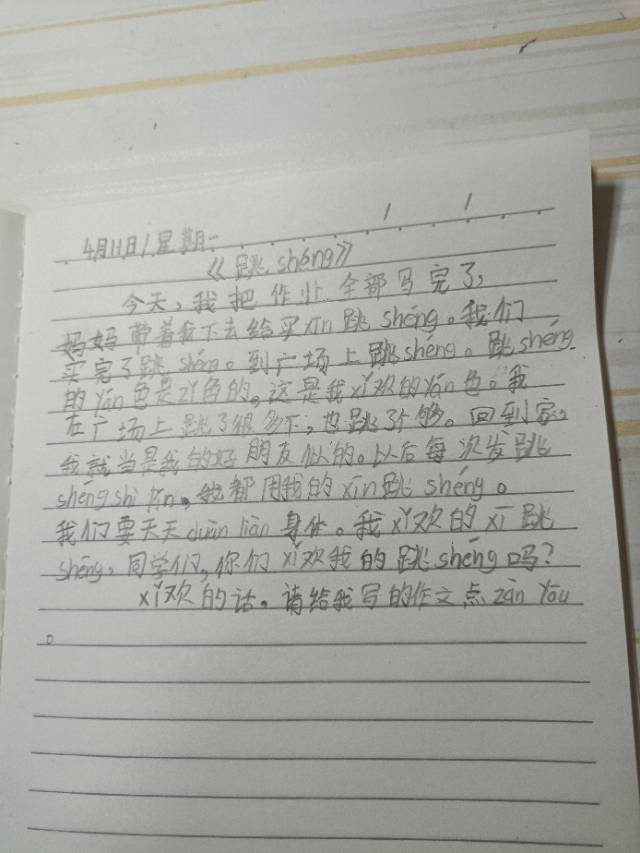 4月11日/星期一
《跳shéng》
今天,我把作业全部写完了,
妈妈带着我下去给买xīn跳shéng。我们
买完了跳shéng。到广场上跳shéng。跳shéng
的yán色是zǐ色的。这是我xǐ欢的yán色。我
在广场上跳了很多下,也跳了个够。回到家,
我就当是我的好朋友似的。以后每次发跳
shéng shì pín,我都用我的xīn跳shéng。
我们要天天duàn liàn身体。我xǐ欢的xī跳
shéng,同学们,你们xǐ欢我的跳shéng吗?
xǐ欢的话。请给我写的作文点zàn yōu
。